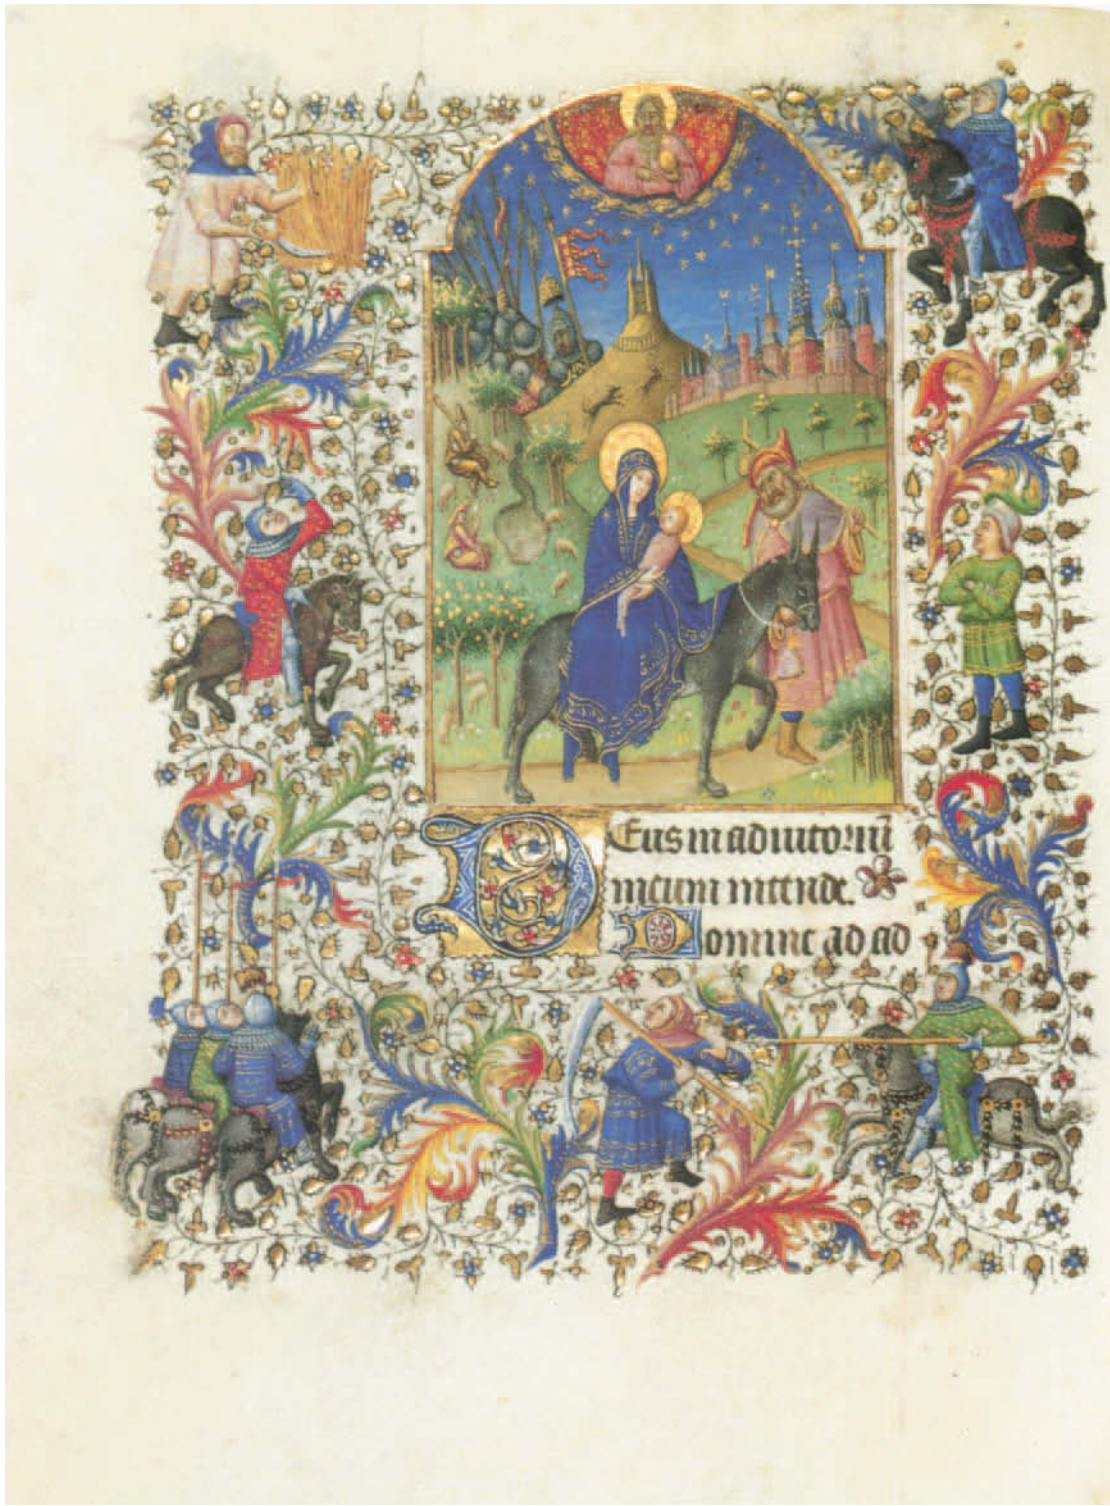 Deus in adiutoriū
meum intende.
Domine ad ad